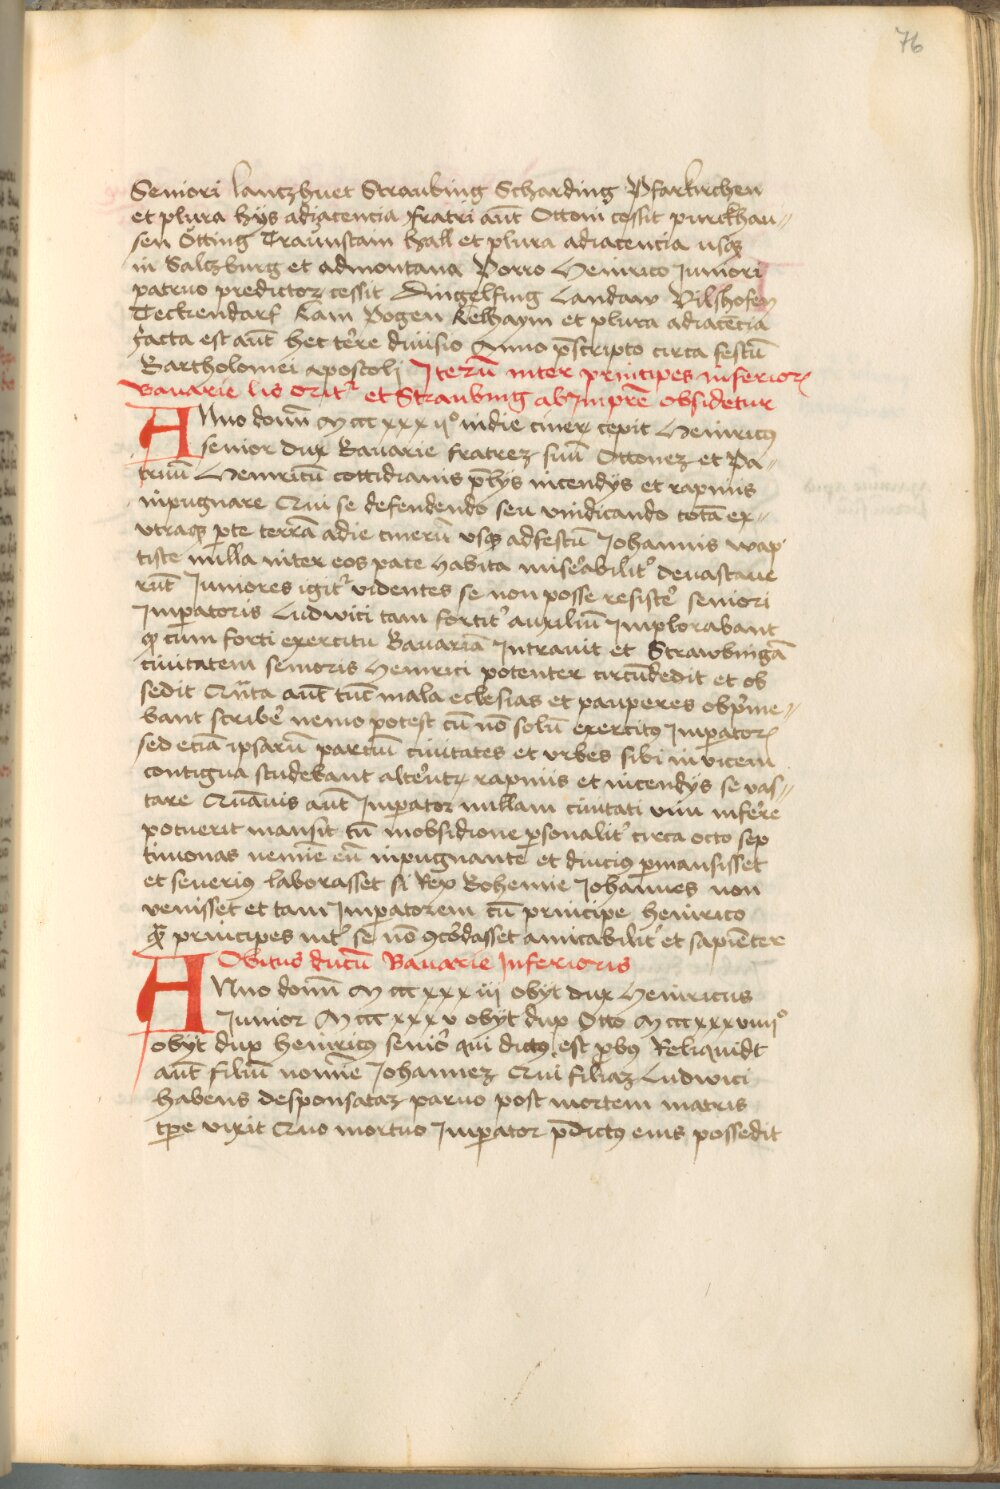 76
Seniori lantzhuet Straubing Scharding Pfarkirchen
et plura hijs adiacencia fratri aut̄ Ottoni cessit purckhau
sen Ötting Traunstain hall et plura adiacencia usq3
in Saltzburg et admontana Porro Heinrico Juniori
patruo predictoꝝ cessit Dingelfing Landaw Vilshofen
Teckendarf Kam Pogen Kelhaym et plura adiacēcia
facta est aut̄ hec ter̄e diuisio Anno p̄scripto circa festū
Bartholomei apostolj Iterū inter principes inferior
Bauarie lis oritᵉ et Straubing ab Impr̄e obsidetur
ANno domī M ccc xxx ijº in die ciner̄ cepit Heinricꝰ
senior dux Bauarie fratrez suū Ottonez et Pa
truū Heinricū cottidianis p̄lijs incendijs et rapinis
inpugnare Qui se defendendo seu vindicando totā ex
vtraq3 p̱te terrā a die cinerū vsq3 ad festū Johannis wap
tiste nulla inter eos pace habita mise̓abilitᵉ deuastaue
rūt Juniores igitᵉ videntes se non posse resiste̓ seniori
Imp̱atoris Ludwici tam fortitᵉ auxiliū Implorabant
q̱ cum forti exercitu Bauariā Intrauit et Strawbingā
ciuitatem senioris Heinrici potenter circūdedit et ob
sedit Qūta aut̄ tūc mala ecclesias et pauperes obp̓me
bant scribe̓ nemo potest cū nō solū exercitꝰ Imp̱ator
sed etiā ipsarū parciū ciuitates et vrbes sibi in vicem
contigua studebant alte̓utr rapinis et incendijs se vas
tare Quāuis aut̄ Imp̱ator nullam ciuitati vim infe̓re
potuerit mansit tū in obsidione p̱sonalitᵉ circa octo sep
timonas nemīe eū inpugnante et diucius p̱mansisset
et seuerius laborasset si Rex Bohemie Johannes non
venisset et tam Imp̱atorem cū principe heinrico
q̄ȝ principes intᵉ se nō ꝯco̓dasset amicabilitᵉ et sapiēter
Obitus ducū Bauarie Inferioris
ANno domī M ccc xxx iij obyt dux Heinricus
Junior M ccc xxx v obyt dux Otto M ccc xxx viiijº
obyt dux heinricꝰ senio̓ qui dictꝰ est p̱bꝰ Reliquidt
aut̄ filiū nomīe Johannez Qui filiaz Ludwici
habens desponsataz paruo post mortem matris
tp̱e vixit Quo mortuo Imp̱ator p̄dictꝰ eius possedit